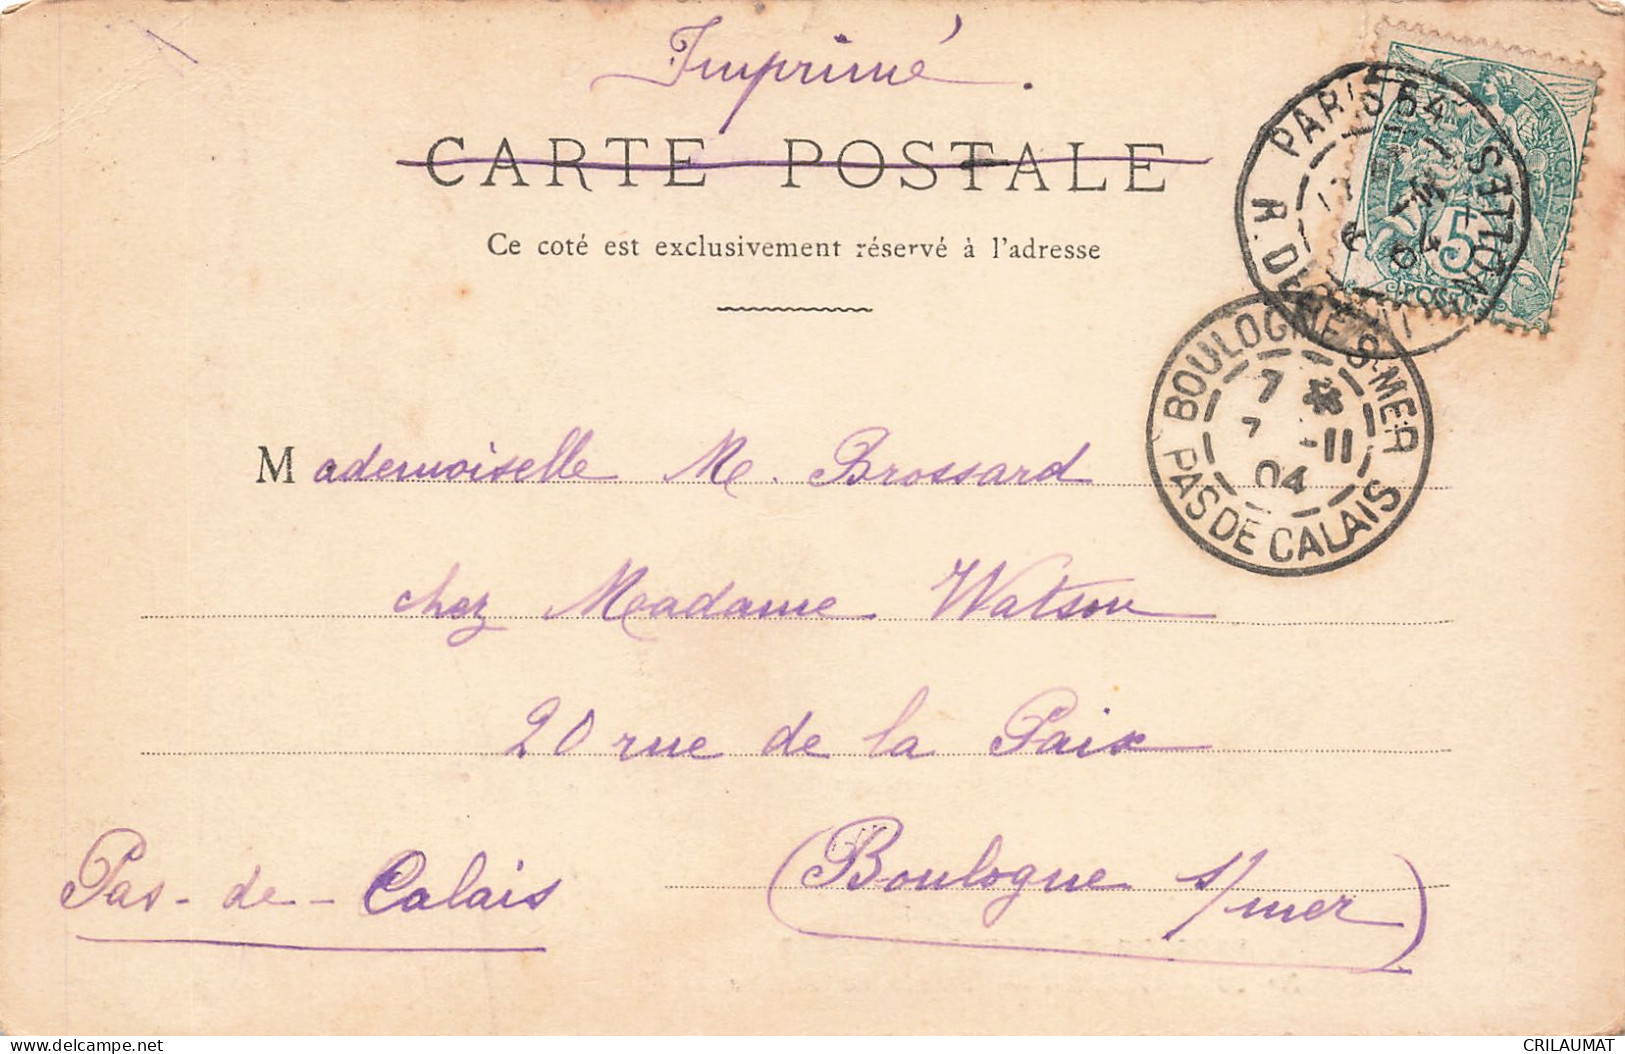 Imprimé.
CARTE POSTALE
Ce coté est exclusivement réservé à l'adresse
PARIS 54
5
BOULOGNE S-MER
7
-11
04
PAS DE CALAIS
Mademoiselle M. Brossard
chez Madame Watson
20 rue de la Paix
Pas-de-Calais (Boulogne s/mer)
delcampe.net
CRILAUMAT